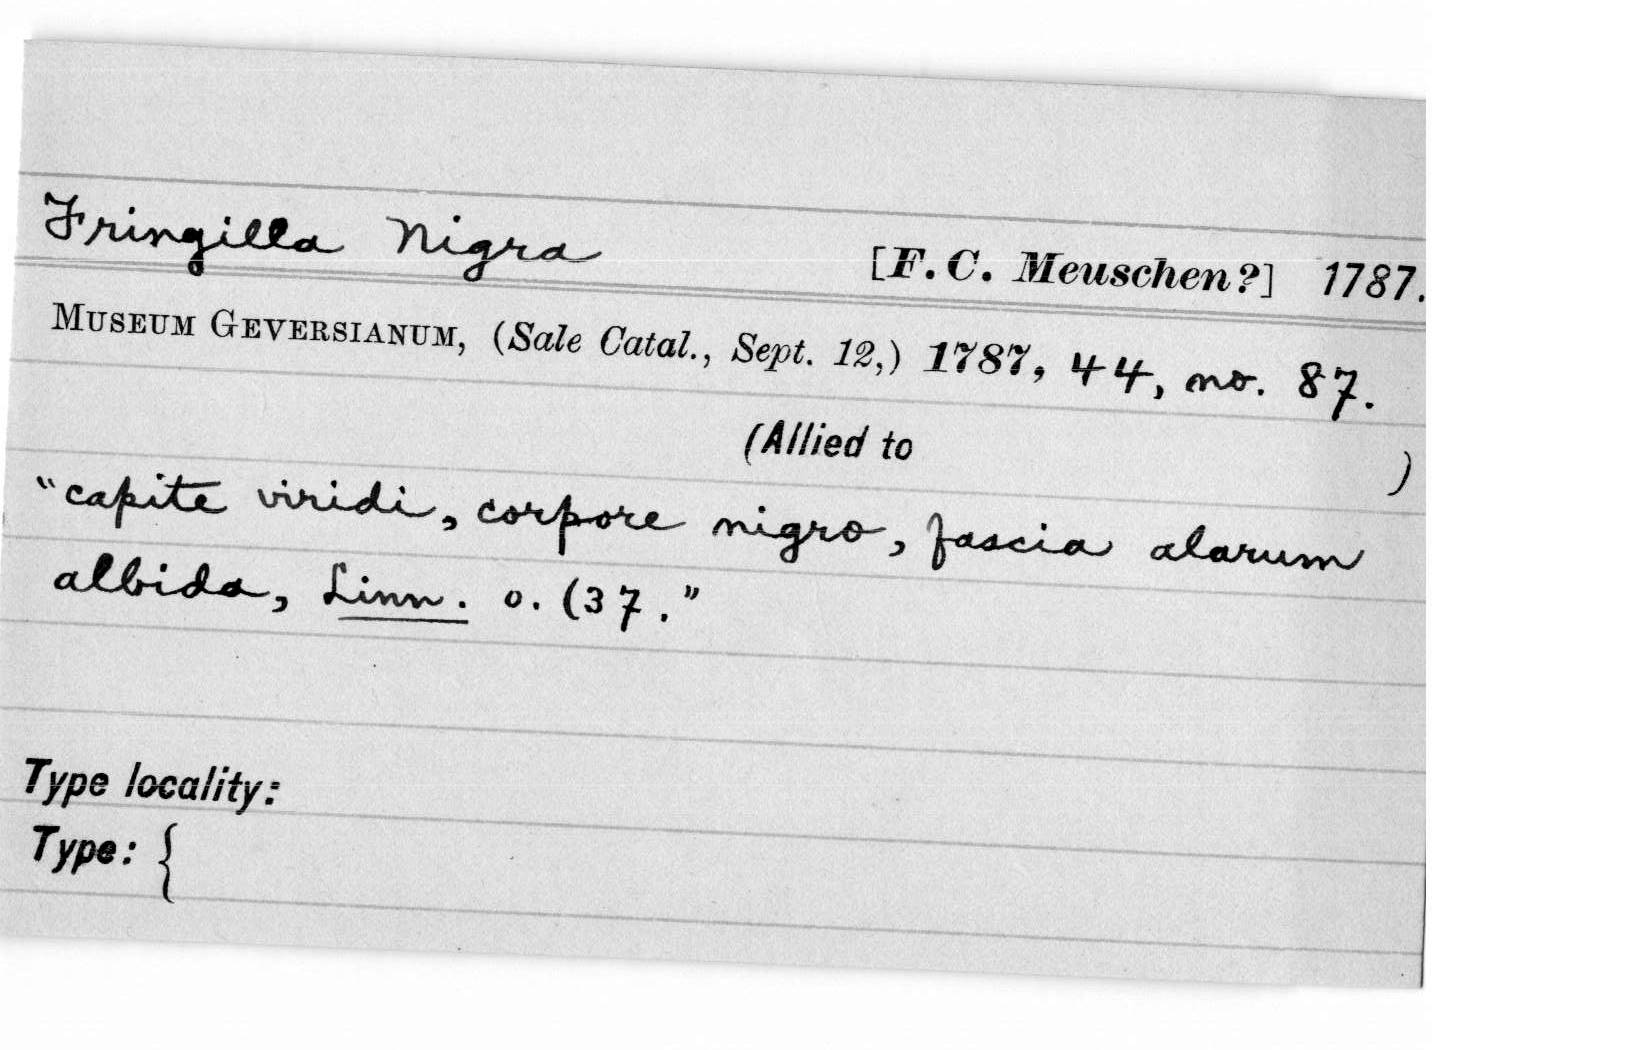 Fringilla Nigra [F. C. Meuschen?] 1787.
MUSEUM GEVERSIANUM, (Sale Catal., Sept. 12,) 1787, 44, no. 87.
(Allied to )
"capite viridi, corpore nigro, fascia alarum
albida, Linn. o. (37."
Type locality:
Type: {